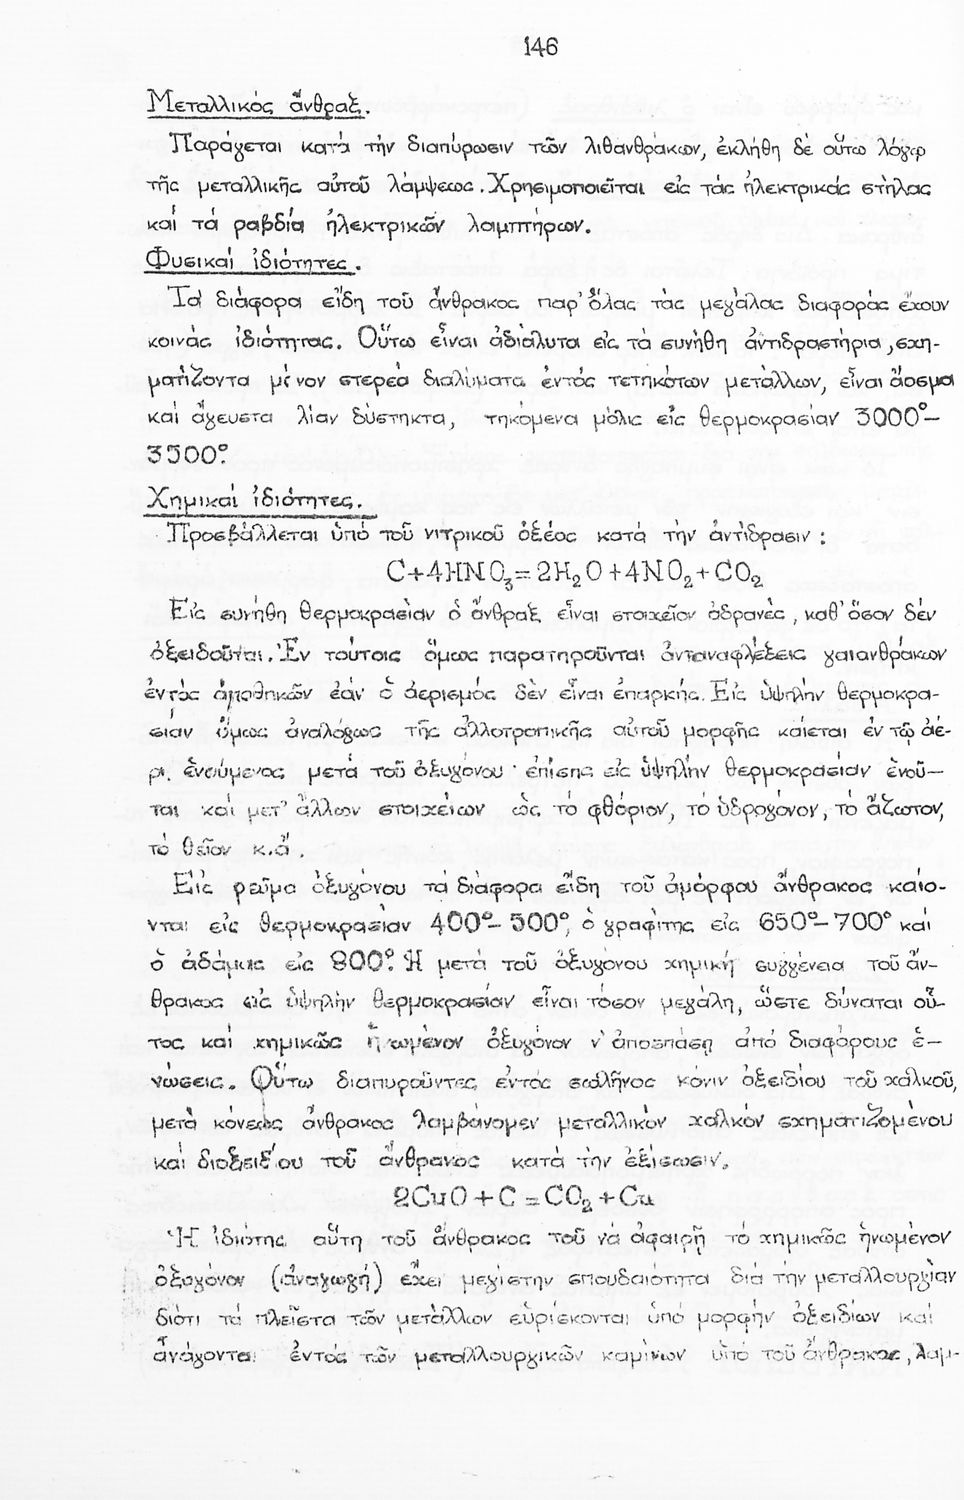 146
Μεταλλικός ἄνθραξ.
Παράγεται κατά τήν διαπύρωσιν τῶν λιθανθράκων, ἐκλήθη δέ οὕτω λόγῳ
τῆς μεταλλικῆς αὐτοῦ λάμψεως. Χρησιμοποιεῖται εἰς τάς ἠλεκτρικάς στήλας
καί τά ραβδία ἠλεκτρικῶν λαμπτήρων.
Φυσικαί ἰδιότητες.
Τά διάφορα εἴδη τοῦ ἄνθρακος παρ' ὅλας τάς μεγάλας διαφοράς ἔχουν
κοινάς ἰδιότητας. Οὕτω εἶναι ἀδιάλυτα εἰς τά συνήθη ἀντιδραστήρια, σχη-
ματίζοντα μόνον στερεά διαλύματα ἐντός τετηκότων μετάλλων, εἶναι ἄοσμα
καί ἄγευστα λίαν δύστηκτα, τηκόμενα μόλις εἰς θερμοκρασίαν 3000°–
3500°.
Χημικαί ἰδιότητες.
Προσβάλλεται ὑπό τοῦ νιτρικοῦ ὀξέος κατά τήν ἀντίδρασιν :
C+4HNO₃=2H₂O+4NO₂+CO₂
Εἰς συνήθη θερμοκρασίαν ὁ ἄνθραξ εἶναι στοιχεῖον ἀδρανές, καθ' ὅσον δέν
ὀξειδοῦται. Ἐν τούτοις ὅμως παρατηροῦνται ἀνταναφλέξεις γαιανθράκων
ἐντός ἀποθηκῶν ἐάν ὁ ἀερισμός δέν εἶναι ἐπαρκής. Εἰς ὑψηλήν θερμοκρα-
σίαν ὅμως ἀναλόγως τῆς ἀλλοτροπικῆς αὐτοῦ μορφῆς καίεται ἐν τῷ ἀέ-
ρι ἑνούμενος μετά τοῦ ὀξυγόνου· ἐπίσης εἰς ὑψηλήν θερμοκρασίαν ἑνοῦ–
ται καί μετ' ἄλλων στοιχείων ὡς τό φθόριον, τό ὑδρογόνον, τό ἄζωτον,
τό θεῖον κ.ἄ.
Εἰς ρεῦμα ὀξυγόνου τά διάφορα εἴδη τοῦ ἀμόρφου ἄνθρακος καίο-
νται εἰς θερμοκρασίαν 400°–500°, ὁ γραφίτης εἰς 650°–700° καί
ὁ ἀδάμας εἰς 800°. Ἡ μετά τοῦ ὀξυγόνου χημική συγγένεια τοῦ ἄν-
θρακος εἰς ὑψηλήν θερμοκρασίαν εἶναι τόσον μεγάλη, ὥστε δύναται οὗ-
τος καί χημικῶς ἡνωμένον ὀξυγόνον ν' ἀποσπάσῃ ἀπό διαφόρους ἑ–
νώσεις. Οὕτω διαπυροῦντες ἐντός σωλῆνος κόνιν ὀξειδίου τοῦ χαλκοῦ,
μετά κόνεως ἄνθρακος λαμβάνομεν μεταλλικόν χαλκόν σχηματιζομένου
καί διοξειδίου τοῦ ἄνθρακος κατά τήν ἐξίσωσιν.
2CuO+C=CO₂+Cu
Ἡ ἰδιότης αὕτη τοῦ ἄνθρακος τοῦ νά ἀφαιρῇ τό χημικῶς ἡνωμένον
ὀξυγόνον (ἀναγωγή) ἔχει μεγίστην σπουδαιότητα διά τήν μεταλλουργίαν
διότι τά πλεῖστα τῶν μετάλλων εὑρίσκονται ὑπό μορφήν ὀξειδίων καί
ἀνάγονται ἐντός τῶν μεταλλουργικῶν καμίνων ὑπό τοῦ ἄνθρακος, λαμ-